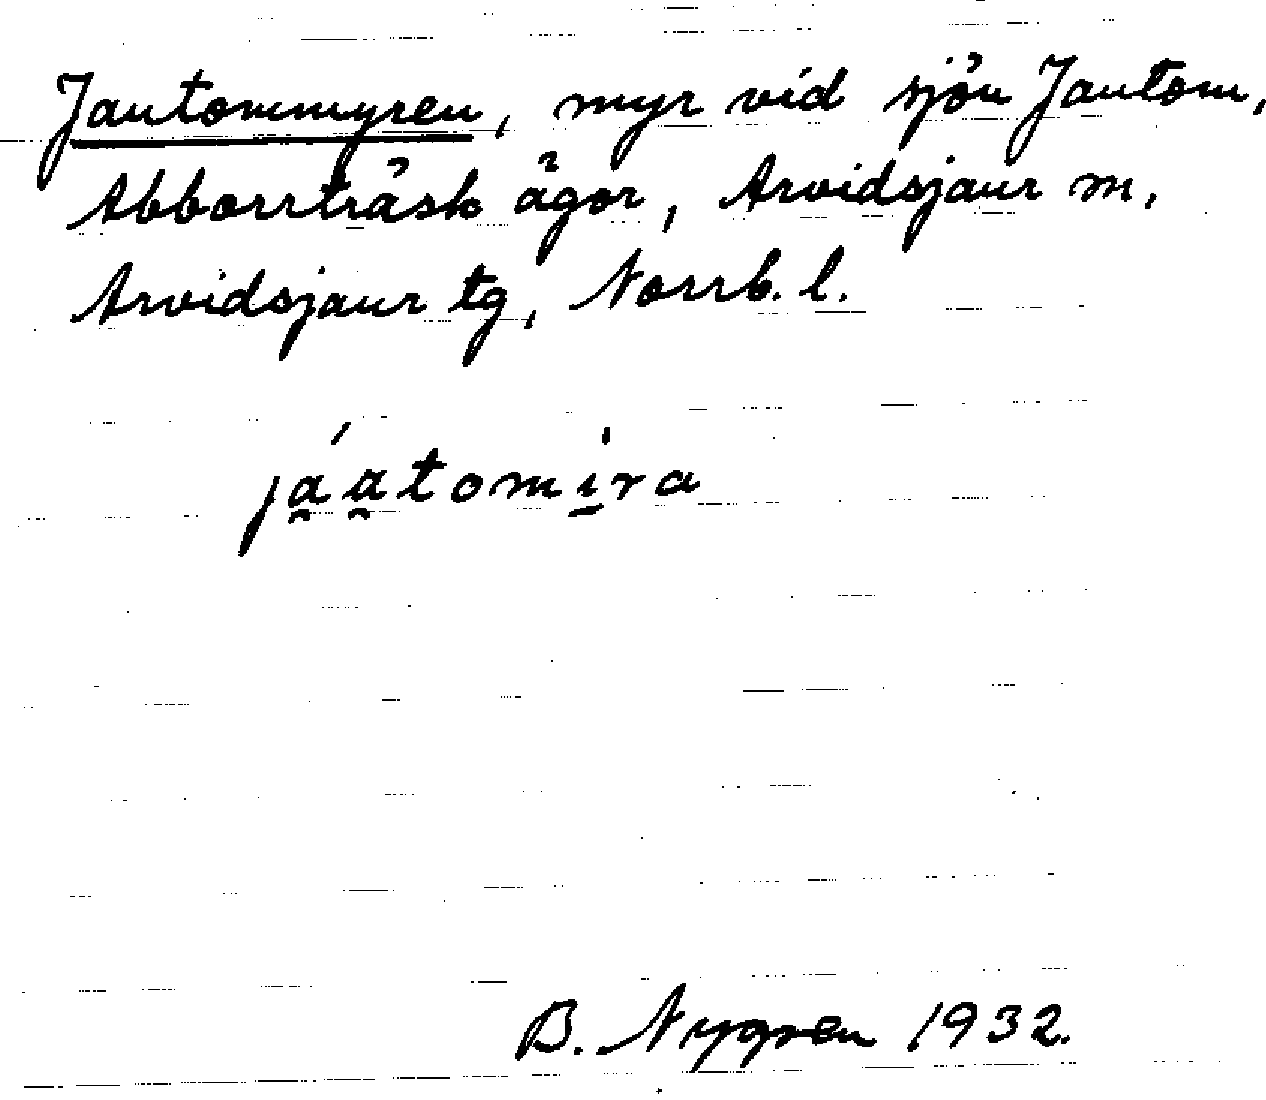 Jautommyren, myr vid sjön Jautom,
Abborrträsk ägor, Arvidsjaur m.
Arvidsjaur tg, Norrb. l.
já̯a̯tomi̠ra
B. Nygren 1932.